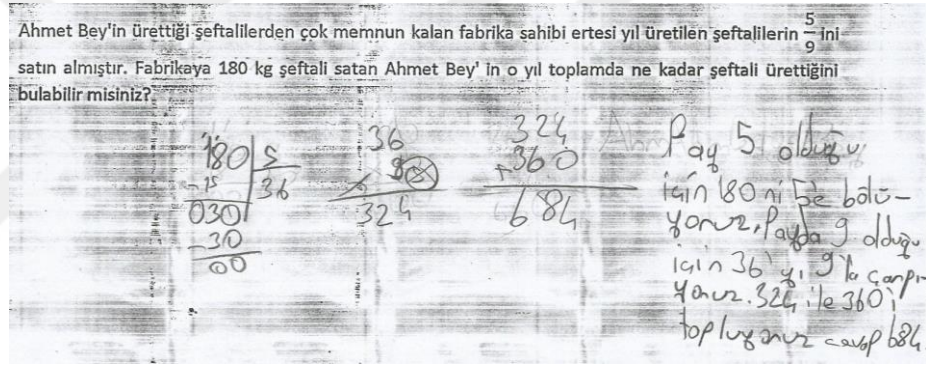 Ahmet Bey'in ürettiği şeftalilerden çok memnun kalan fabrika sahibi ertesi yıl üretilen şeftalilerin 5/9 ini
satın almıştır. Fabrikaya 180 kg şeftali satan Ahmet Bey' in o yıl toplamda ne kadar şeftali ürettiğini
bulabilir misiniz?
180 5
- 15 36
030
- 30
00
36
9 x
324
324
+ 360
684
Pay 5 olduğu
için 180 ni 5'e bölü-
yoruz. Payda 9 olduğu
için 36'yı 9'la çarpı-
yoruz. 324 ile 360'ı
topluyoruz cevap 684